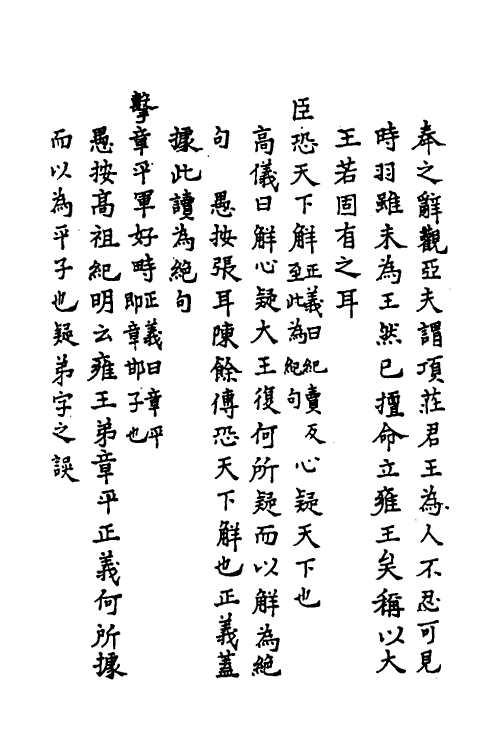 奉之辭觀亞夫謂項莊君王為人不忍可見
時羽雖未為王然已擅命立雍王矣稱以大
王若固有之耳
臣恐天下解正義曰紀賣反至此為絕句心疑天下也
高儀曰解心疑大王復何所疑而以解為絕
句　愚按張耳陳餘傳恐天下解也正義蓋
據此讀為絕句
擊章平軍好時正義曰章平即章邯子也
愚按高祖紀明云雍王弟章平正義何所據
而以為平子也疑弟字之誤